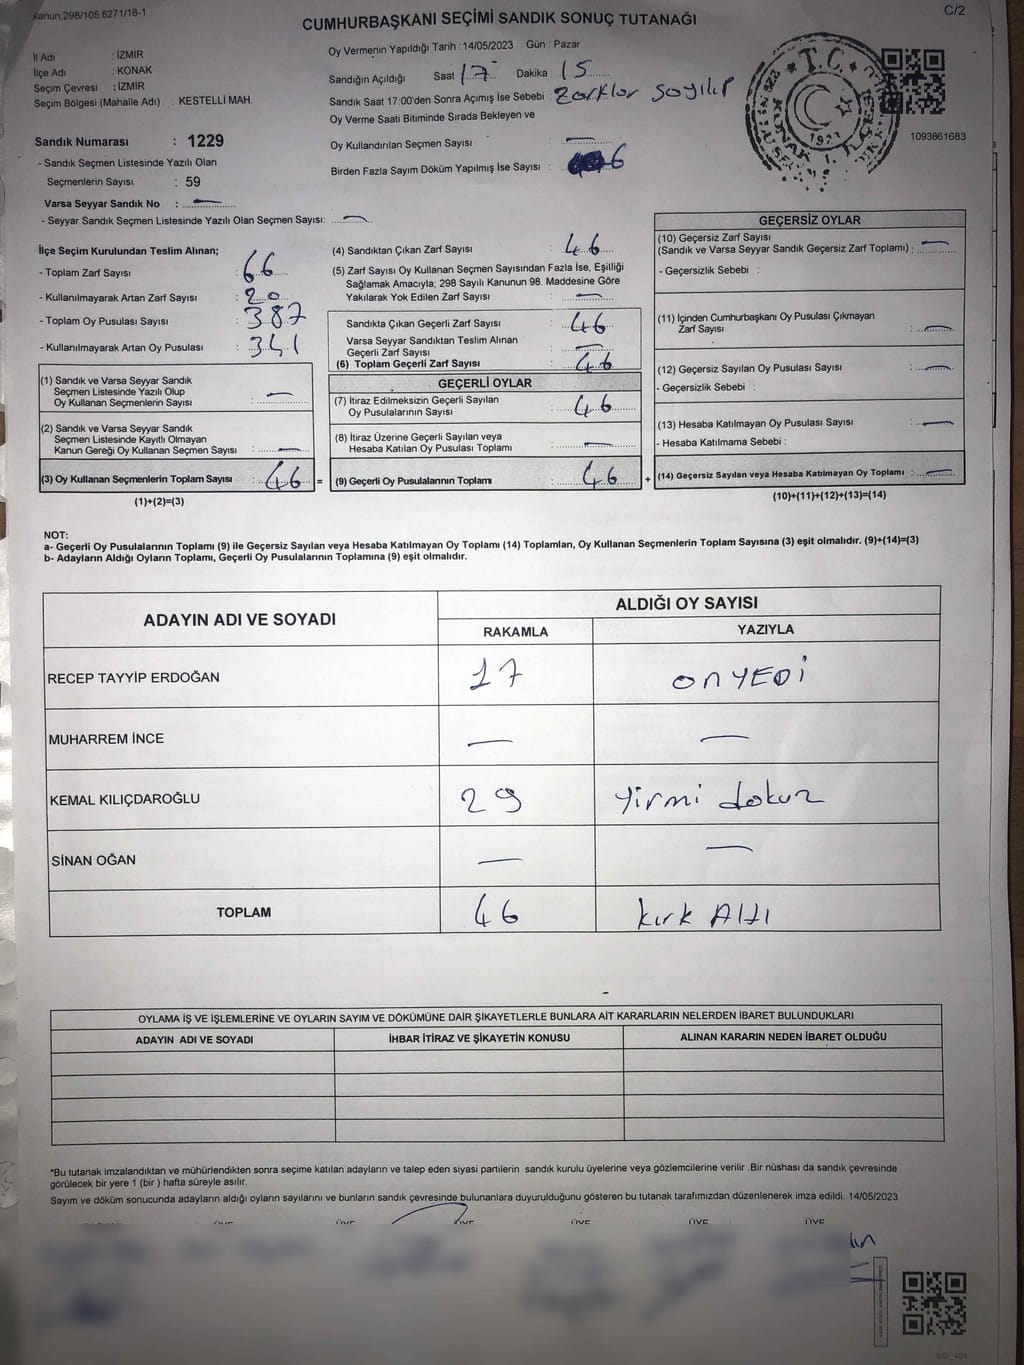 Kanun:298/105,6271/18-1
C/2
CUMHURBAŞKANI SEÇİMİ SANDIK SONUÇ TUTANAĞI
İl Adı : İZMİR
İlçe Adı : KONAK
Seçim Çevresi : İZMİR
Seçim Bölgesi (Mahalle Adı) : KESTELLİ MAH.
Oy Vermenin Yapıldığı Tarih : 14/05/2023 Gün : Pazar
Sandığın Açıldığı Saat 17 Dakika 15
Sandık Saat 17:00'den Sonra Açımış İse Sebebi : Zarklar Sayılıp
Oy Verme Saati Bitiminde Sırada Bekleyen ve
Oy Kullandırılan Seçmen Sayısı : —
Birden Fazla Sayım Döküm Yapılmış İse Sayısı : 6
T.C.
KONAK
1093861683
Sandık Numarası : 1229
- Sandık Seçmen Listesinde Yazılı Olan
Seçmenlerin Sayısı : 59
Varsa Seyyar Sandık No : —
- Seyyar Sandık Seçmen Listesinde Yazılı Olan Seçmen Sayısı: —
İlçe Seçim Kurulundan Teslim Alınan;
- Toplam Zarf Sayısı : 66
- Kullanılmayarak Artan Zarf Sayısı : 20
- Toplam Oy Pusulası Sayısı : 387
- Kullanılmayarak Artan Oy Pusulası : 341
(1) Sandık ve Varsa Seyyar Sandık
Seçmen Listesinde Yazılı Olup
Oy Kullanan Seçmenlerin Sayısı : —
(2) Sandık ve Varsa Seyyar Sandık
Seçmen Listesinde Kayıtlı Olmayan
Kanun Gereği Oy Kullanan Seçmen Sayısı : —
(3) Oy Kullanan Seçmenlerin Toplam Sayısı : 46
(1)+(2)=(3)
(4) Sandıktan Çıkan Zarf Sayısı : 46
(5) Zarf Sayısı Oy Kullanan Seçmen Sayısından Fazla İse, Eşitliği
Sağlamak Amacıyla; 298 Sayılı Kanunun 98. Maddesine Göre
Yakılarak Yok Edilen Zarf Sayısı : —
Sandıkta Çıkan Geçerli Zarf Sayısı : 46
Varsa Seyyar Sandıktan Teslim Alınan
Geçerli Zarf Sayısı : —
(6) Toplam Geçerli Zarf Sayısı : 46
GEÇERLİ OYLAR
(7) İtiraz Edilmeksizin Geçerli Sayılan
Oy Pusulalarının Sayısı : 46
(8) İtiraz Üzerine Geçerli Sayılan veya
Hesaba Katılan Oy Pusulası Toplamı : —
= (9) Geçerli Oy Pusulalarının Toplamı : 46
GEÇERSİZ OYLAR
(10) Geçersiz Zarf Sayısı
(Sandık ve Varsa Seyyar Sandık Geçersiz Zarf Toplamı) : —
- Geçersizlik Sebebi :
(11) İçinden Cumhurbaşkanı Oy Pusulası Çıkmayan
Zarf Sayısı : —
(12) Geçersiz Sayılan Oy Pusulası Sayısı : —
- Geçersizlik Sebebi :
(13) Hesaba Katılmayan Oy Pusulası Sayısı : —
- Hesaba Katılmama Sebebi :
+ (14) Geçersiz Sayılan veya Hesaba Katılmayan Oy Toplamı : —
(10)+(11)+(12)+(13)=(14)
NOT:
a- Geçerli Oy Pusulalarının Toplamı (9) ile Geçersiz Sayılan veya Hesaba Katılmayan Oy Toplamı (14) Toplamları, Oy Kullanan Seçmenlerin Toplam Sayısına (3) eşit olmalıdır. (9)+(14)=(3)
b- Adayların Aldığı Oyların Toplamı, Geçerli Oy Pusulalarının Toplamına (9) eşit olmalıdır.
ADAYIN ADI VE SOYADI
ALDIĞI OY SAYISI
RAKAMLA YAZIYLA
RECEP TAYYİP ERDOĞAN 17 ONYEDİ
MUHARREM İNCE — —
KEMAL KILIÇDAROĞLU 29 Yirmi dokuz
SİNAN OĞAN — —
TOPLAM 46 kırk Altı
OYLAMA İŞ VE İŞLEMLERİNE VE OYLARIN SAYIM VE DÖKÜMÜNE DAİR ŞİKAYETLERLE BUNLARA AİT KARARLARIN NELERDEN İBARET BULUNDUKLARI
ADAYIN ADI VE SOYADI İHBAR İTİRAZ VE ŞİKAYETİN KONUSU ALINAN KARARIN NEDEN İBARET OLDUĞU
*Bu tutanak imzalandıktan ve mühürlendikten sonra seçime katılan adayların ve talep eden siyasi partilerin sandık kurulu üyelerine veya gözlemcilerine verilir .Bir nüshası da sandık çevresinde
görülecek bir yere 1 (bir ) hafta süreyle asılır.
Sayım ve döküm sonucunda adayların aldığı oyların sayılarını ve bunların sandık çevresinde bulunanlara duyurulduğunu gösteren bu tutanak tarafımızdan düzenlenerek imza edildi. 14/05/2023
ÜYE ÜYE ÜYE ÜYE ÜYE ÜYE